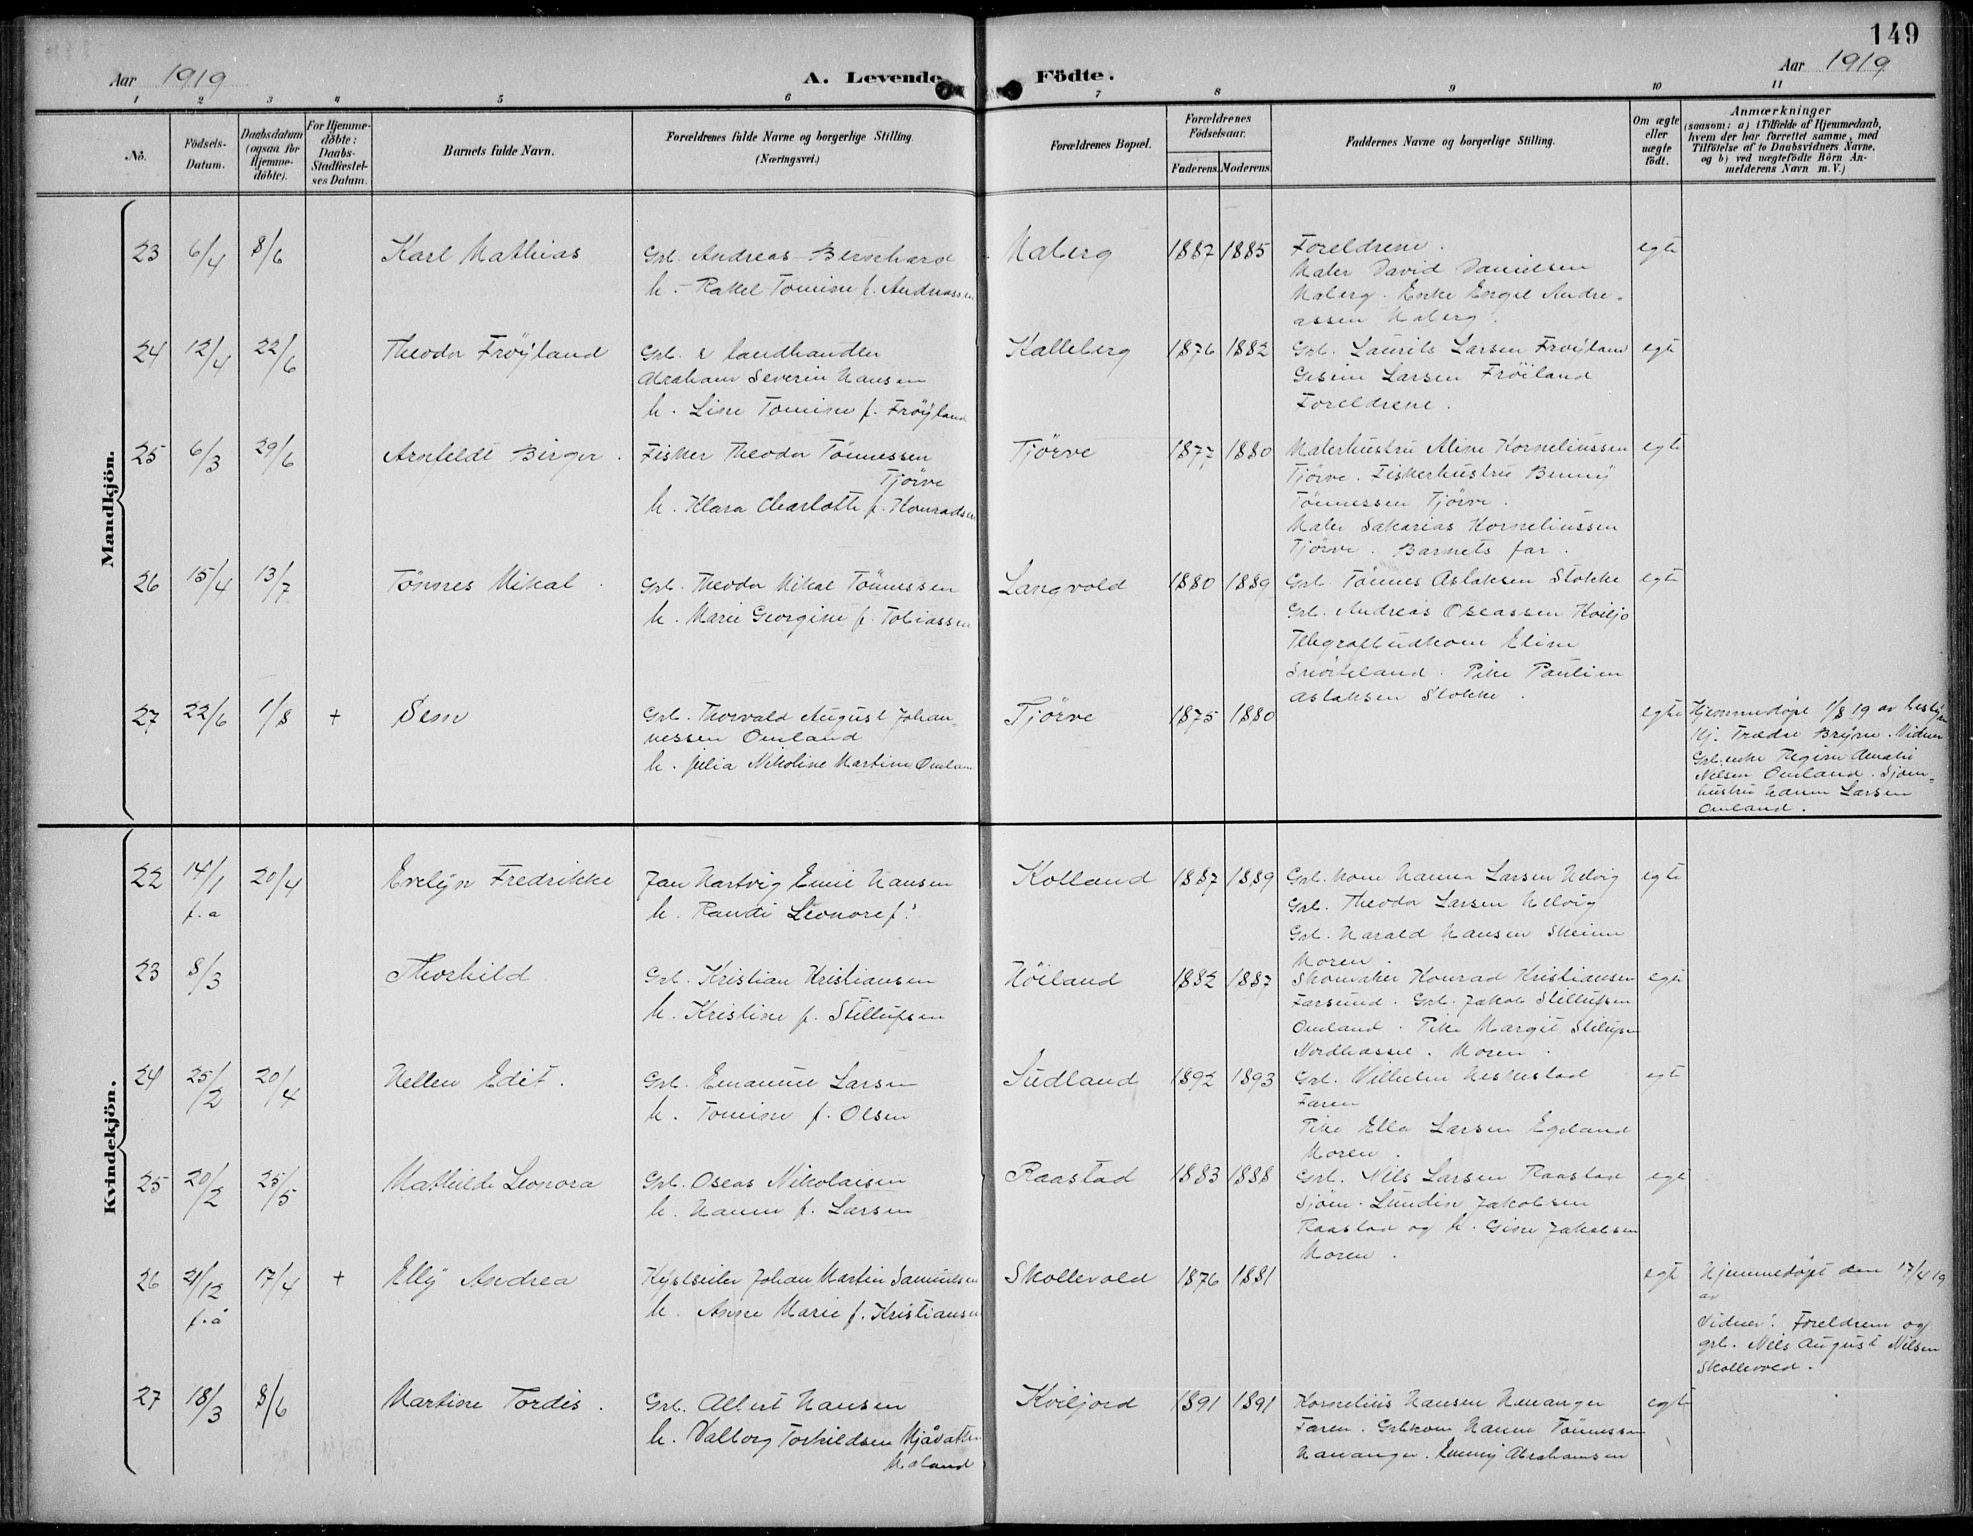 149
Aar 1919
A. Levende
Födte.
Aar 1919
1 2 3 4 5 6 7 8 9 10 11
No.
Födsels-
Datum.
Daabsdatum
(ogsaa for
Hjemme-
döbte).
For Hjemme-
döbte:
Daabs-
Stadfæstel-
ses Datum.
Barnets fulde Navn.
Forældrenes fulde Navne og borgerlige Stilling.
(Næringsvei.)
Forældrenes Bopæl.
Forældrenes
Födselsaar.
Faderens. Moderens.
Faddernes Navne og borgerlige Stilling.
Om ægte
eller
uægte
födt.
Anmærkninger
(saasom: a) i Tilfælde af Hjemmedaab,
hvem der har forrettet samme, med
Tilföielse af to Daabsvidners Navne,
og b) ved uægtefödte Börn An-
melderens Navn m. V.)
Mandkjön.
23 6/4 8/6 Karl Mathias
Grb. Andreas Bernhard
h. Rakel Tomine f. Andreassen
Maberg 1887 1885
Foreldrene.
Maler David Danielsen
Maberg. Enke Engel Andre-
assen Maberg.
egte
24 12/4 22/6 Theodor Fröyland
Grb. & landhandler
Abraham Severin Hansen
h. Line Tomine f. Fröyland
Kalleberg 1876 1882
Grb. Laurits Larsen Fröyland
Gesine Larsen Fröiland
Foreldrene.
egte
25 6/3 29/6 Arnfeldt Birger.
Fisker Theodor Tönnessen
Tjörve
h. Klara Charlotte f. Konradsen
Tjörve 1877 1880
Malerhustru Aline Korneliussen
Tjörve. Fiskerhustru Benny
Tönnessen Tjörve.
Maler Sakarias Korneliussen
Tjörve. Barnets far.
egte
26 15/4 13/7 Tönnes Mikal
Grb. Theodor Mikal Tönnessen
h. Marie Georgine f. Tobiassen
Langvold 1880 1889
Grb. Tönnes Aslaksen Stokke
Grb. Andreas Oseassen Kviljo
Telegrafbudkone Eline
Pike Pauline
Aslaksen Stokke.
egte
27 22/6 1/8 + Sem
Grb. Thorvald August Johan-
nessen Omland
h. Julia Nikoline Martine Omland
Tjörve 1875 1880
egte
Hjemmedöpt 1/8 19 av
Bryne. Vidner
Grb.enke Regine Amalie
Nilsen Omland. Sjöm-
hustru Hanne Larsen
Omland.
Kvindekjön.
22 14/1 f.a 20/4 Evelyn Fredrikke
Jan Hartvig Emil Hansen
h. Randi Leonore f.
Kolland 1887 1889
Grb. kone Hanna Larsen Helvig
Grb. Theodor Larsen Helvig
Grb. Harald Hansen Skeime
Moren.
egte
23 8/3 Thorhild
Grb. Kristian Kristiansen
h. Kristine f. Stillufsen
Höiland 1882 1887
Skomaker Konrad Kristiansen
Farsund. Grb. Jakob Stillufsen
Omland. Pike Margit
Nordhassel. Moren.
egte
24 25/2 20/4 Hellen Edit.
Grb. Emanuel Larsen
h. Tomine f. Olsen
Sudland 1892 1893
Grb. Vilhelm Heskestad
Faren
Pike Ella Larsen Egeland
Moren.
egte
25 20/2 25/5 Mathilde Leonora
Grb. Oseas Nikolaisen
h. Hanne f. Larsen
Raastad 1883 1888
Grb. Nils Larsen Raastad
Sjöm. Lundin Jakobsen
Raastad og h. Gine Jakobsen
Moren.
egte
26 21/12 f.å 17/4 + Elly Andrea
Kystseiler Johan Martin Samuelsen
h. Anne Marie f. Kristiansen
Skollevold 1876 1881
egte
Hjemmedöpt den 17/4 19
av
Vidner: Foreldrene og
grb. Nils August Nilsen
Skollevold.
27 18/3 8/6 Martine Tordis.
Grb. Albert Hansen
h. Valborg Torkildsen
Kviljord 1891 1891
Kornelius Hansen Hananger
Faren. Grbkone Hanne Tönnessen
Hananger. Emmy Abrahamsen
egte